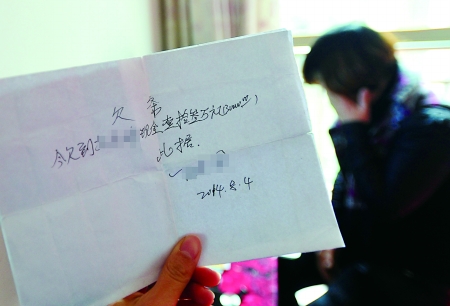 欠条
今欠到 现金壹拾叁万元(130000)
此据.
2014.8.4